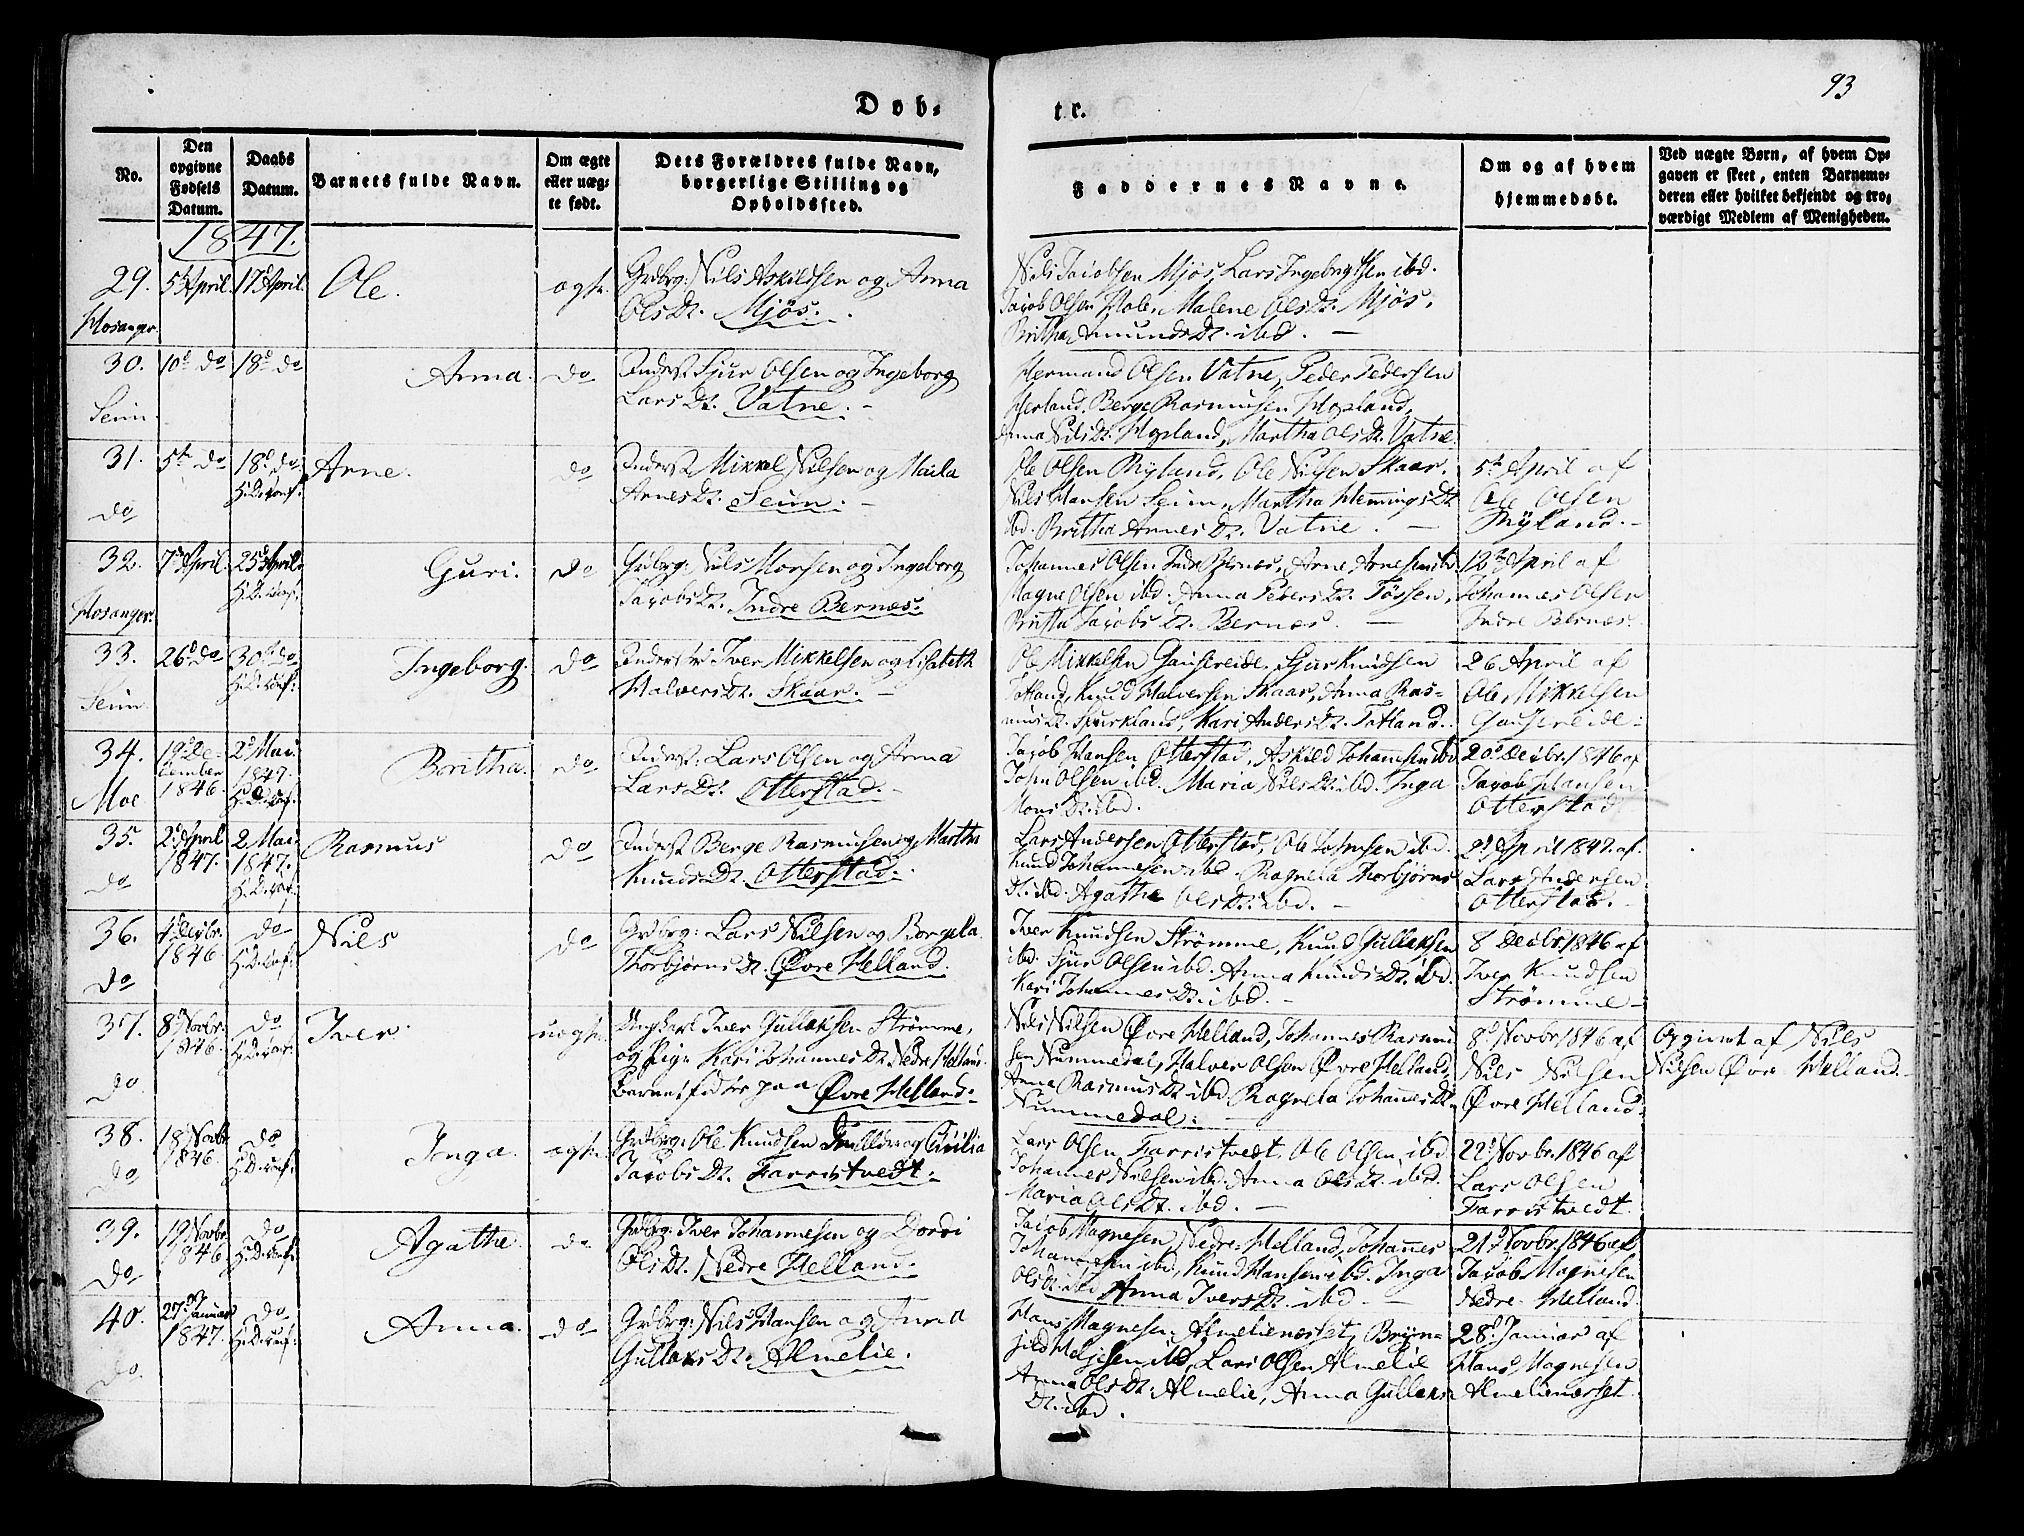 Døb-
te.
93
No.
Den opgivne Fødsels Datum.
Daabs Datum.
Barnets fulde Navn.
Om ægte eller uægte født.
Dets Forældres fulde Navn, borgerlige Stilling og Opholdssted.
Faddernes Navne.
Om og af hvem hjemmedøbt.
Ved uægte Børn, af hvem Opgaven er skeet, enten Barnemoderen eller hvilket bekjendt og troværdigt Medlem af Menigheden.
1847.
29. 5t April 17d April Ole. ægte.
Hosanger.
Grdbrg: Nils Askildsen og Anna
Olsdt. Mjøs.
Nils Jacobsen Mjøs, Lars Ingebrgtsen ibd.
Jacob Olsen Hole, Malene Olsdt. Mjøs,
Britha Amundsdt. ibd.
30. 10d do 18d do Anna. do
Seim
Inderst Sjur Olsen og Ingeborg
Larsdt. Vatne.
Hermand Olsen Vatne, Peder Pedersen
Herland, Berge Rasmusen Hopland,
Anna Nilsdt. Hopland, Martha Olsdt. Vatne.
31. 5t do 18d do Arne. do
do
Inderst Mikkel Nilsen og Marta
Arnesdt. Seim.
Ole Olsen Ryland, Ole Nilsen Skaar,
Nils Hansen Seim, Martha Hemmingsdt
ibd. Britha Arnesdt. Vatne.
5t April af
Ole Olsen
Ryland.
32. 7d April 25d April Guri. do
Hosanger.
Grdbrg: Nils Monsen og Ingeborg
Jacobsdt. Indre Bernæs.
Johannes Olsen Indre Bernæs, Arne Arnesen ibd
Magne Olsen ibd. Anna Pedersdt. Tøssen,
Britha Jacobsdt. Bernæs.
12te April af
Johannes Olsen
Indre Bernæs.
33. 26d do 30d do Ingeborg. do
Seim
Inderst Iver Mikkelsen og Lisabeth
Halversdt. Skaar.
Ole Mikkelsen Gausereide, Sjur Knudsen
Tatland, Knud Halversen Skaar, Anna Ras-
musdt. Spurkland, Kari Andersdt. Tatland.
26 April af
Ole Mikkelsen
Gausereide.
34. 19d De- 2d Mai Britha. do
cember 1847.
Moe 1846.
Inderst: Lars Olsen og Anna
Larsdt. Otterstad.
Jacob Hansen Otterstad, Askild Johannesen ibd
John Olsen ibd. Maria Nilsdt. ibd. Inga
Monsdt. ibd.
20d Decbr. 1846 af
Jacob Hansen
Otterstad
35. 2d April 2 Mai Rasmus do
do 1847. 1847.
Inderst Berge Rasmusen og Martha
Knudsdt. Otterstad.
Lars Andersen Otterstad, Ole Johnsen ibd.
Knud Johannesen ibd. Ragnela Thorbjørns
dt. ibd. Agathe Olsdt. ibd.
2d April 1847. af
Lars Andersen
Otterstad.
36. Decbr. do Nils do
do 1846
Grdbrg: Lars Nilsen og Borgela
Thorbjørnsdt. Øvre Helland.
Iver Knudsen Strømme, Knud Gullaksen
ibd. Sjur Olsen ibd. Anna Knudsdt. ibd.
Kari Johannesdt. ibd.
8 Decbr. 1846 af
Iver Knudsen
Strømme
37. 8d Novbr. do Iver uægte
do 1846.
Ungkarl Iver Gullaksen Strømme,
og Pige Kari Johannesdt. Nedre Helland.
Barnet fødes paa Øvre Helland.
Nils Nilsen Øvre Helland, Johannes Rasmu
sen Nummedal, Halver Olsen Øvre Helland,
Anna Rasmusdt. ibd. Ragnela Johannesdt.
Nummedal.
8d Novbr 1846 af
Nils Nilsen
Øvre Helland.
Opgivet af Nils
Nilsen Øvre Helland.
38. 18 Novbr. do Inga. ægte.
do 1846.
Grdbrg: Ole Knudsen og Cicilia
Jacobsdt. Farristvedt.
Lars Olsen Farristvedt. Ole Olsen ibd
Johannes Nilsen ibd. Anna Olsdt. ibd.
Maria Olsdt. ibd.
22d Novbr. 1846 af
Lars Olsen
Farristvedt.
39. 19 Novbr do Agathe. do
do 1846
Grdbrg: Iver Johannesen og Dordi
Olsdt. Nedre Helland.
Jacob Magnesen, Nedre Helland, Johannes
Johannesen ibd, Knud Hansen ibd. Inga
Olsdt. ibd Anna Iversdt. ibd
21d Novbr 1846 af
Jacob Magnesen
Nedre Helland
40. 27de Januar do Anna. do
do 1847.
Grdbrg: Nils Hansen og Anna
Gullaksdt. Almelie.
Hans Magnesen, Almelienæsset, Bryn-
jild Heljesen ibd, Lars Olsen Almelie
Anna Olsdt. Almelie, Anna Gullaks
dt. ibd.
28d Januar af
Hans Magnesen
Almelienæsset.